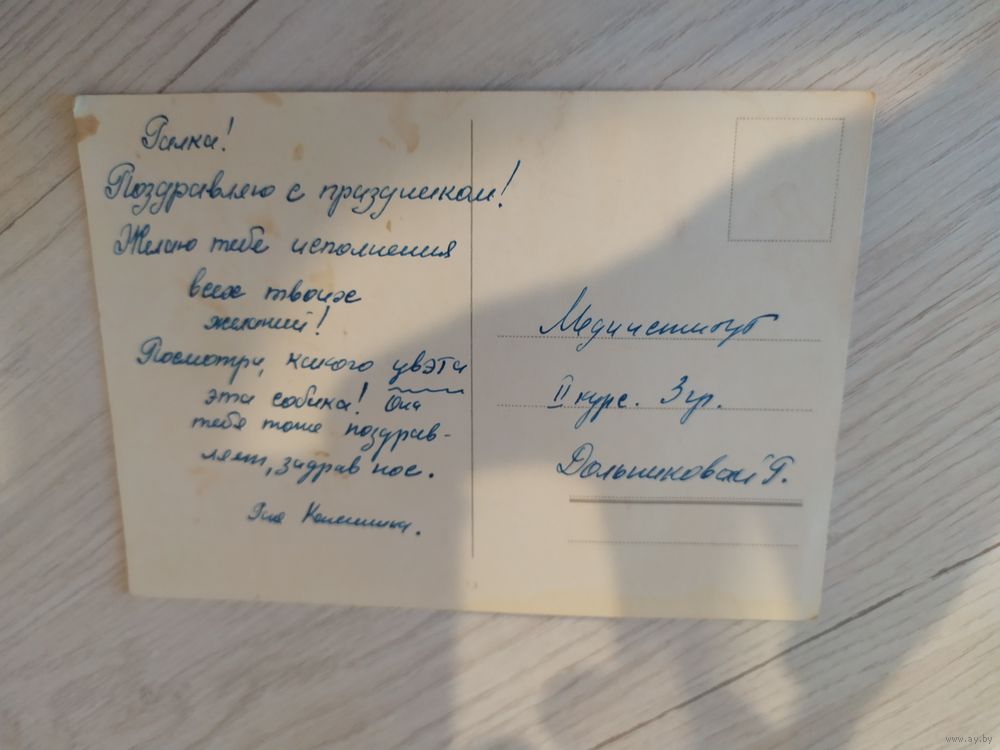 Галка!
Поздравляю с праздником!
Желаю тебе исполнения
всех твоих
желаний!
Посмотри, какого цвэта
эта собака! Она
тебя тоже поздрав-
ляет, задрав нос.
Мединститут
II курс. 3 гр.
Дольниковской Г.
www.ay.by